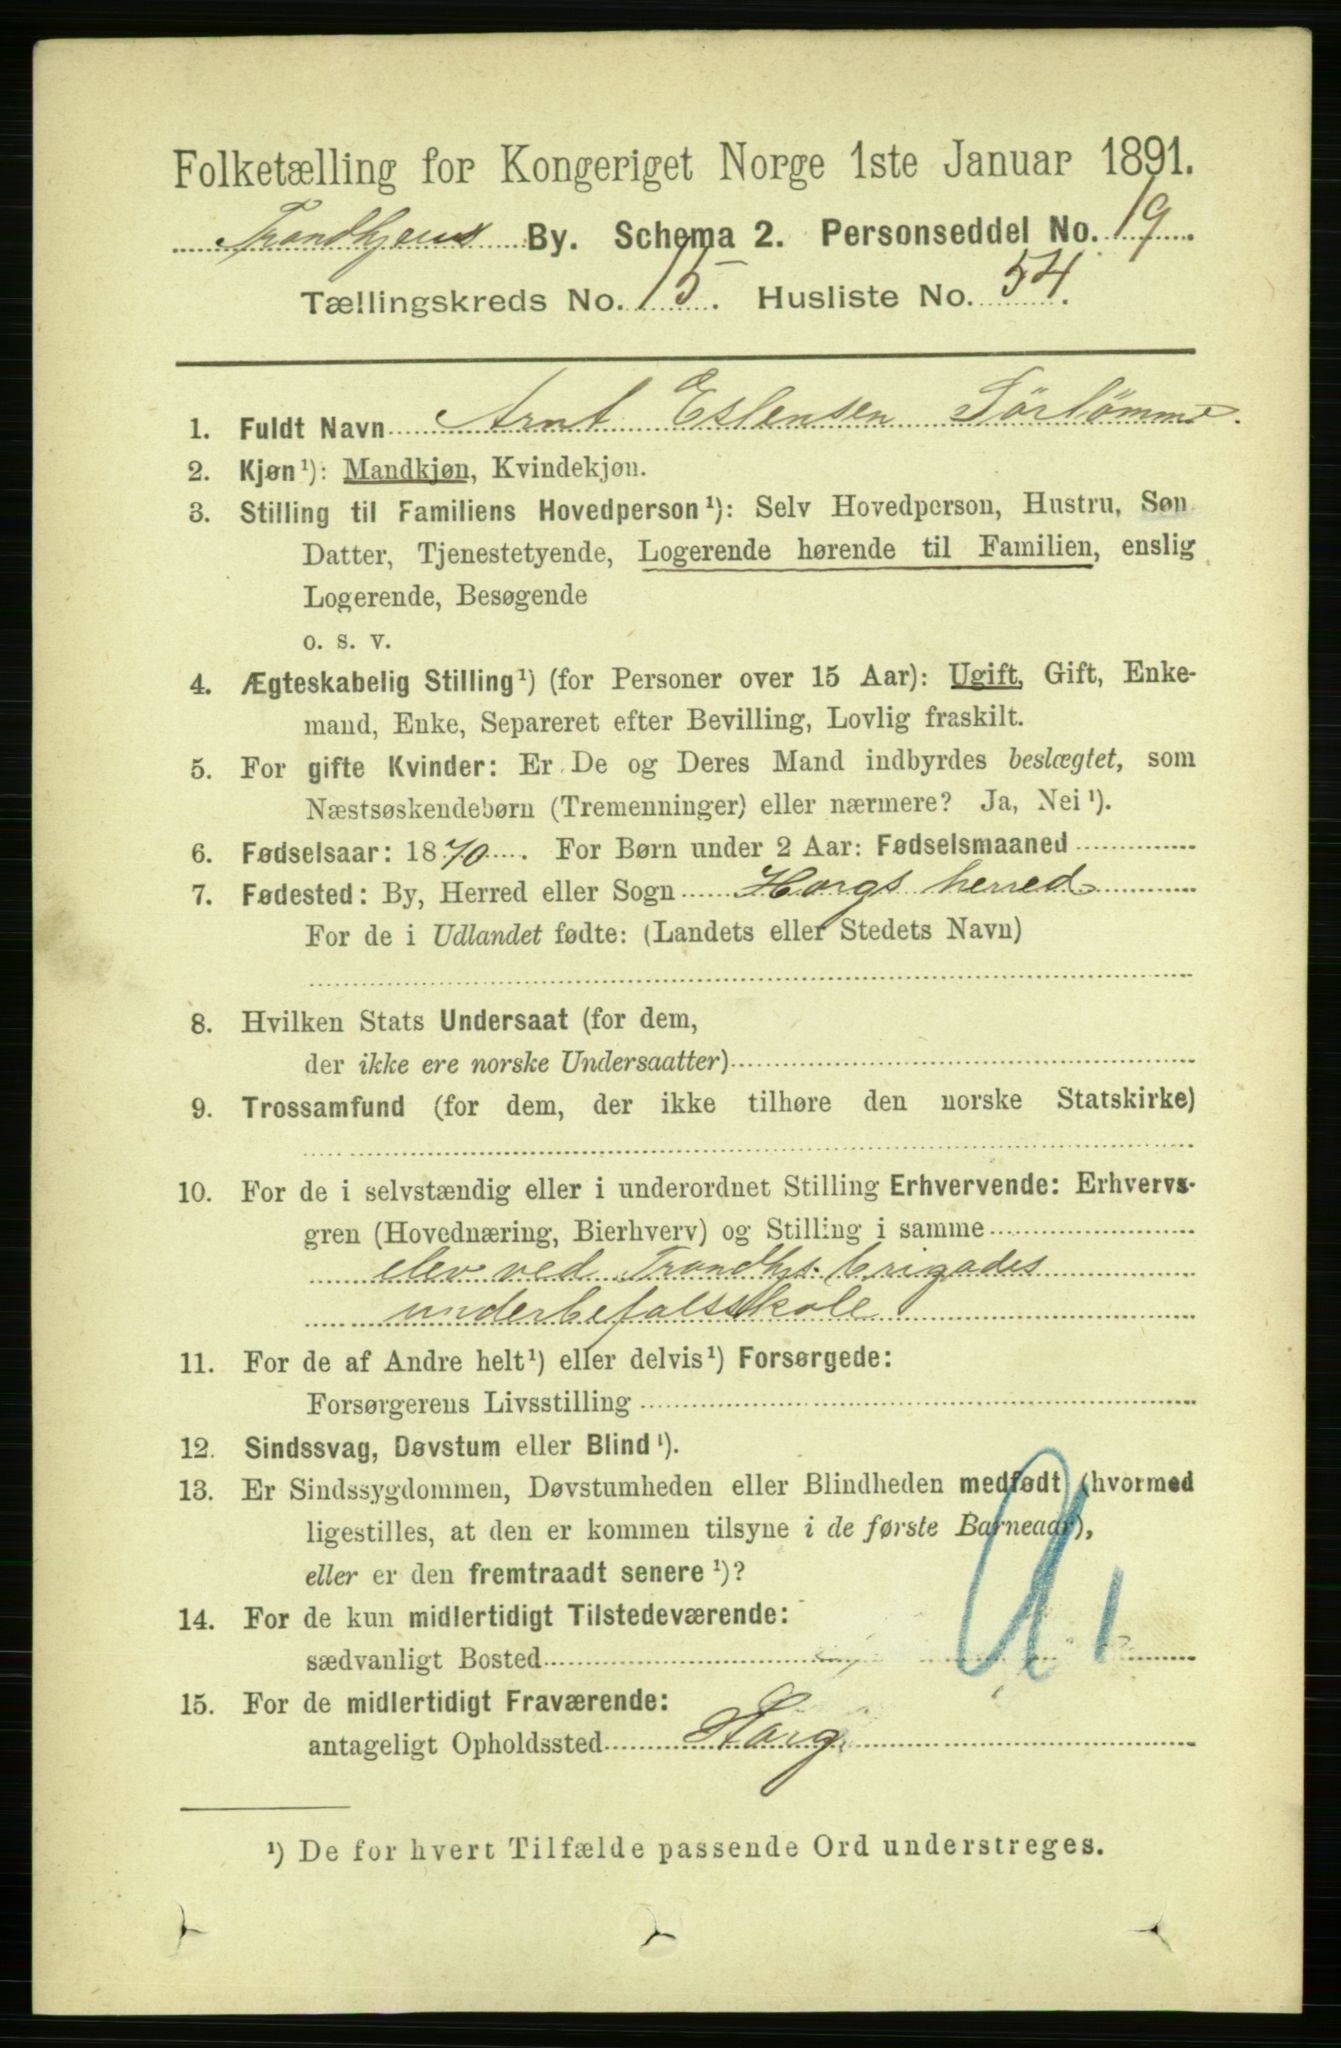 Folketælling for Kongeriget Norge 1ste Januar 1891.
Trondhjems By. Schema 2. Personseddel No. 19.
Tællingskreds No. 15. Husliste No. 54.
1. Fuldt Navn Arnt Eslensen Sörlömme.
2. Kjøn¹): Mandkjøn, Kvindekjøn.
3. Stilling til Familiens Hovedperson¹): Selv Hovedperson, Hustru, Søn
Datter, Tjenestetyende, Logerende hørende til Familien, enslig
Logerende, Besøgende
o. s. v.
4. Ægteskabelig Stilling¹) (for Personer over 15 Aar): Ugift, Gift, Enke-
mand, Enke, Separeret efter Bevilling, Lovlig fraskilt.
5. For gifte Kvinder: Er De og Deres Mand indbyrdes beslægtet, som
Næstsøskendebørn (Tremenninger) eller nærmere? Ja, Nei¹).
6. Fødselsaar: 1870. For Børn under 2 Aar: Fødselsmaaned
7. Fødested: By, Herred eller Sogn Horgs herred
For de i Udlandet fødte: (Landets eller Stedets Navn)
8. Hvilken Stats Undersaat (for dem,
der ikke ere norske Undersaatter)
9. Trossamfund (for dem, der ikke tilhøre den norske Statskirke)
10. For de i selvstændig eller i underordnet Stilling Erhvervende: Erhvervs-
gren (Hovednæring, Bierhverv) og Stilling i samme
elev ved Trondhjs. brigades
underbefalsskole
11. For de af Andre helt¹) eller delvis¹) Forsørgede:
Forsørgerens Livsstilling
12. Sindssvag, Døvstum eller Blind¹).
13. Er Sindssygdommen, Døvstumheden eller Blindheden medfødt (hvormed
ligestilles, at den er kommen tilsyne i de første Barneaar),
eller er den fremtraadt senere¹)?
14. For de kun midlertidigt Tilstedeværende:
sædvanligt Bosted
15. For de midlertidigt Fraværende:
antageligt Opholdssted Horg.
¹) De for hvert Tilfælde passende Ord understreges.